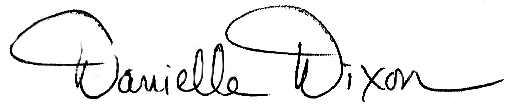 Danielle Dixon